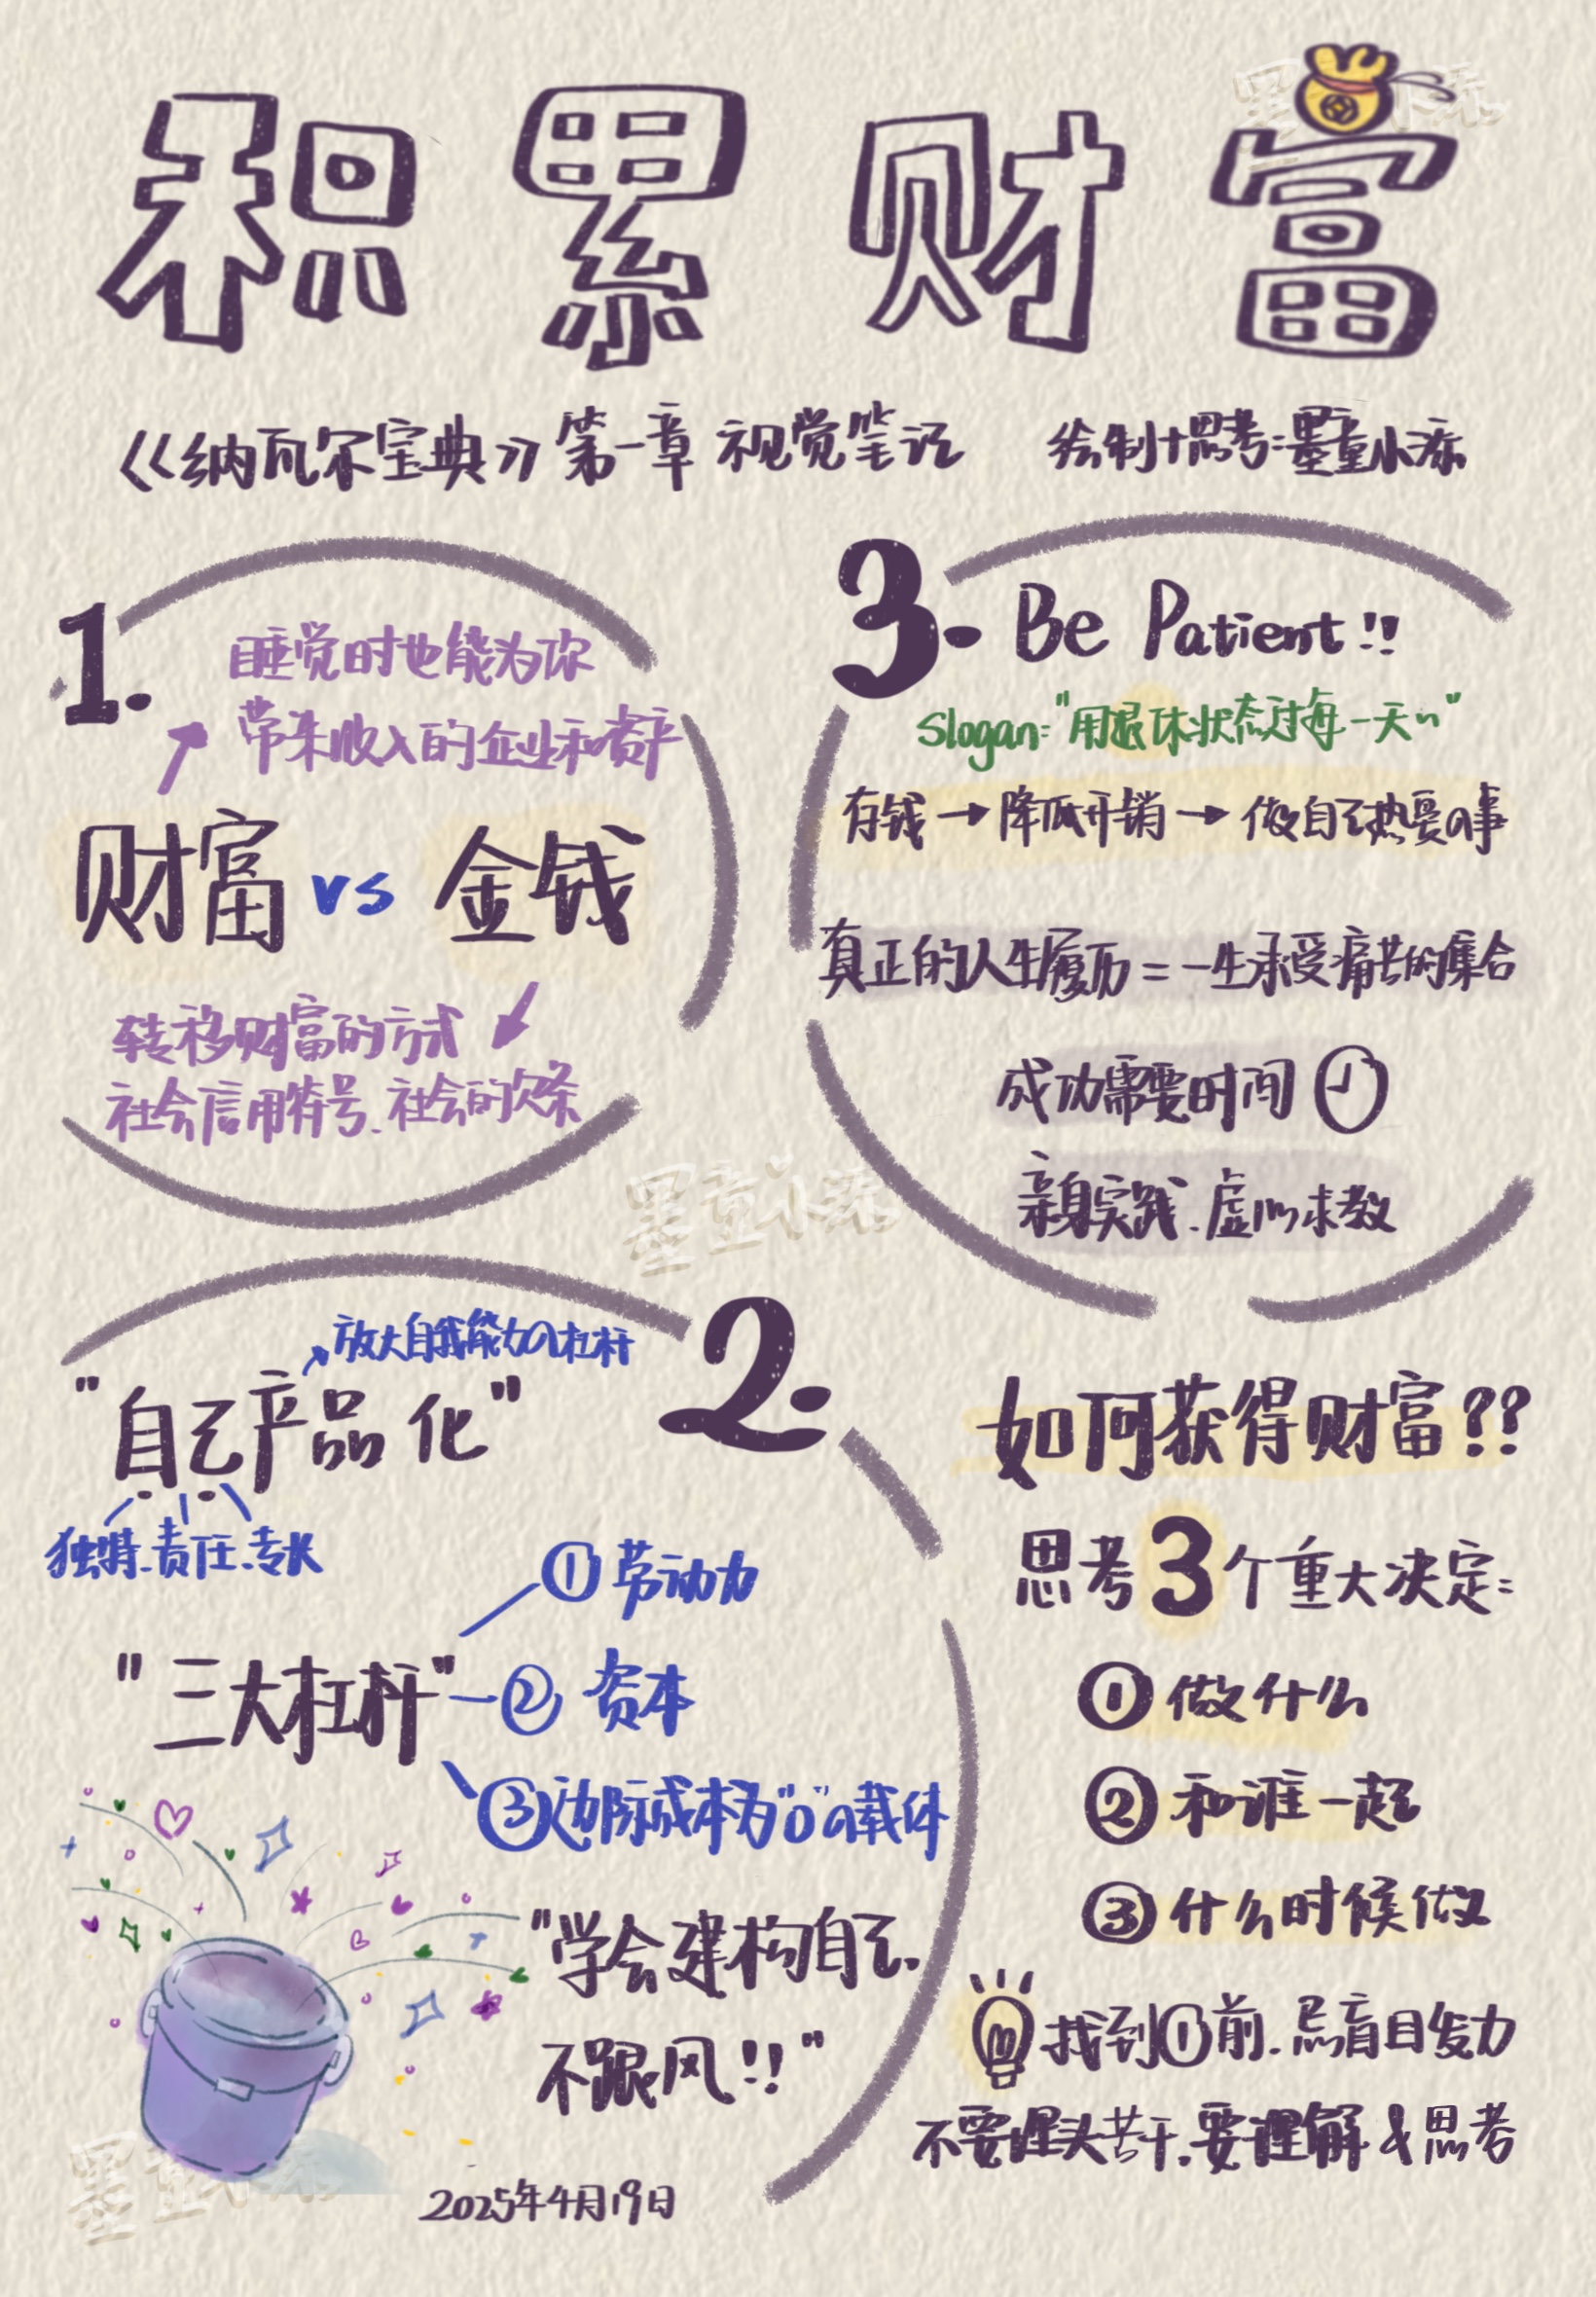 积累财富
《纳瓦尔宝典》第一章 视觉笔记 绘制+思考:墨童小添
1.
睡觉时也能为你
带来收入的企业和资产
财富 vs 金钱
转移财富的方式
社会信用符号、社会的欠条
2.
放大自我能力の杠杆
"自己产品化"
独特、责任、专长
"三大杠杆"
①劳动力
②资本
③边际成本为"0"の载体
"学会建构自己、
不跟风!!"
2025年4月19日
3.
Be Patient!!
Slogan:"用退休状态过每一天~"
存钱→降低开销→做自己热爱の事
真正的人生履历=一生承受痛苦的集合
成功需要时间
亲身实践、虚心求教
如何获得财富??
思考3个重大决定:
①做什么
②和谁一起
③什么时候做
找到①前、忌盲目发力
不要埋头苦干、要理解&思考
墨童小添
墨童小添
墨童小添